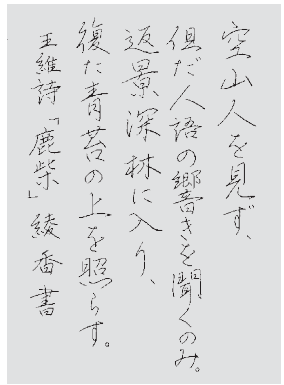 空山人を見ず、
但だ人語の響きを聞くのみ。
返景深林に入り、
復た青苔の上を照らす。
王維詩「鹿柴」綾香書